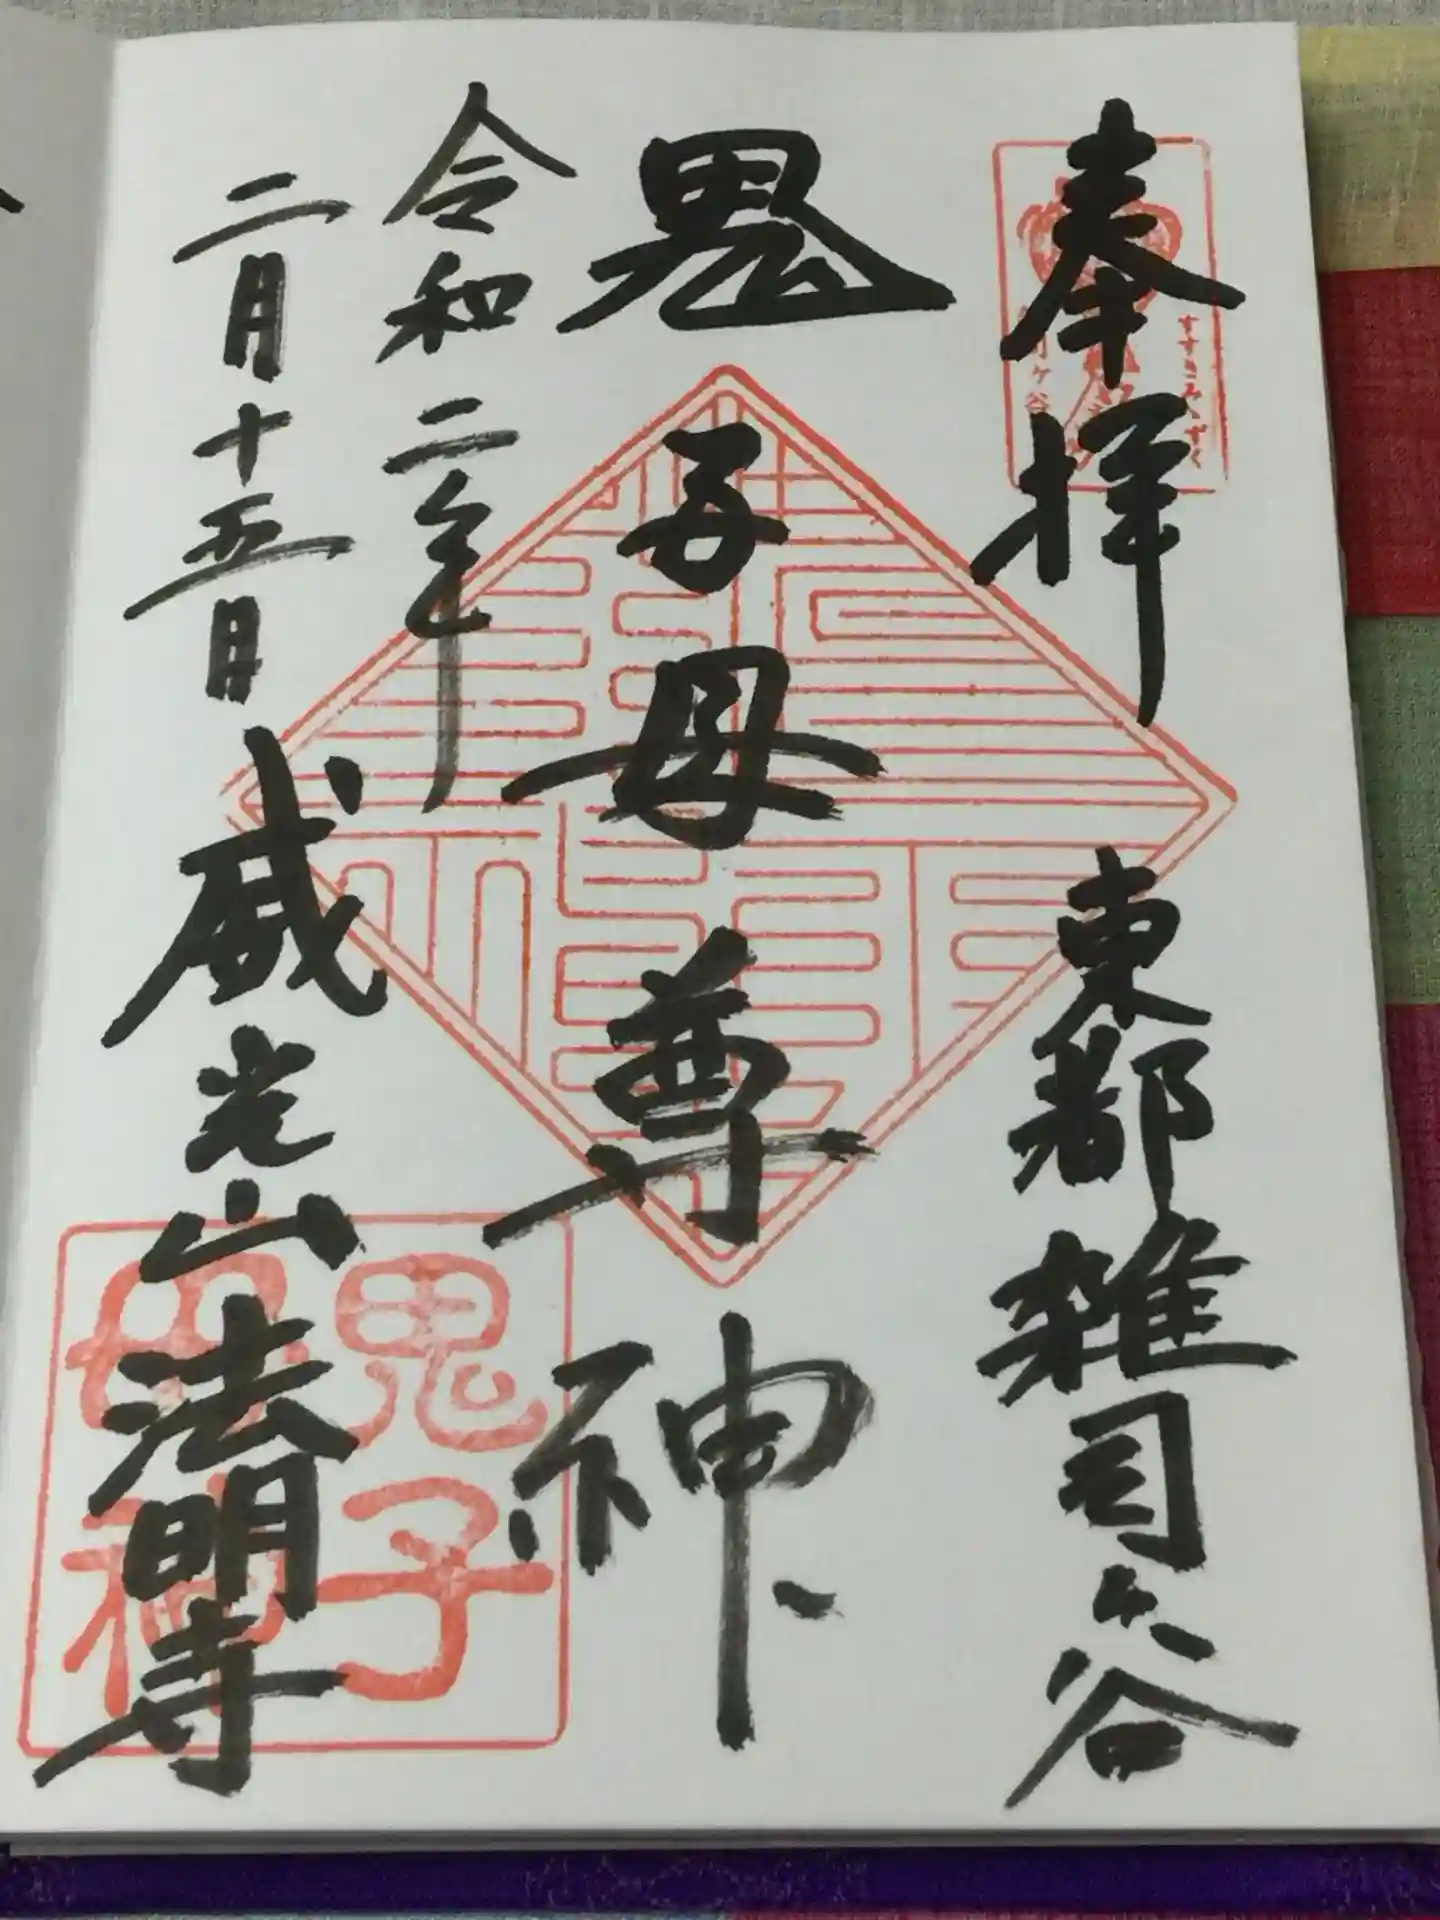 奉拝
東都雑司ヶ谷
すすきみみずく
鬼子母尊神
令和二年
二月十五日
威光山法明寺
鬼子
母神